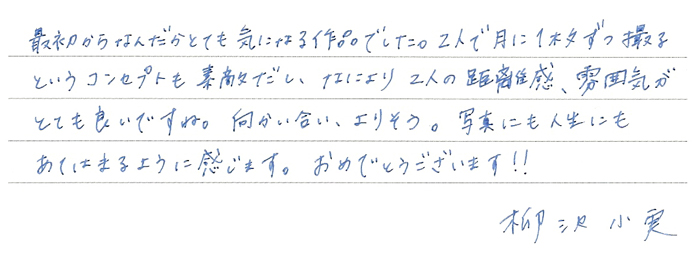 最初からなんだかとても気になる作品でした。2人で月に1本ずつ撮る
というコンセプトも素敵だし、なにより2人の距離感、雰囲気が
とても良いですね。向かい合い、よりそう。写真にも人生にも
あてはまるように感じます。おめでとうございます!!
柳沢小実